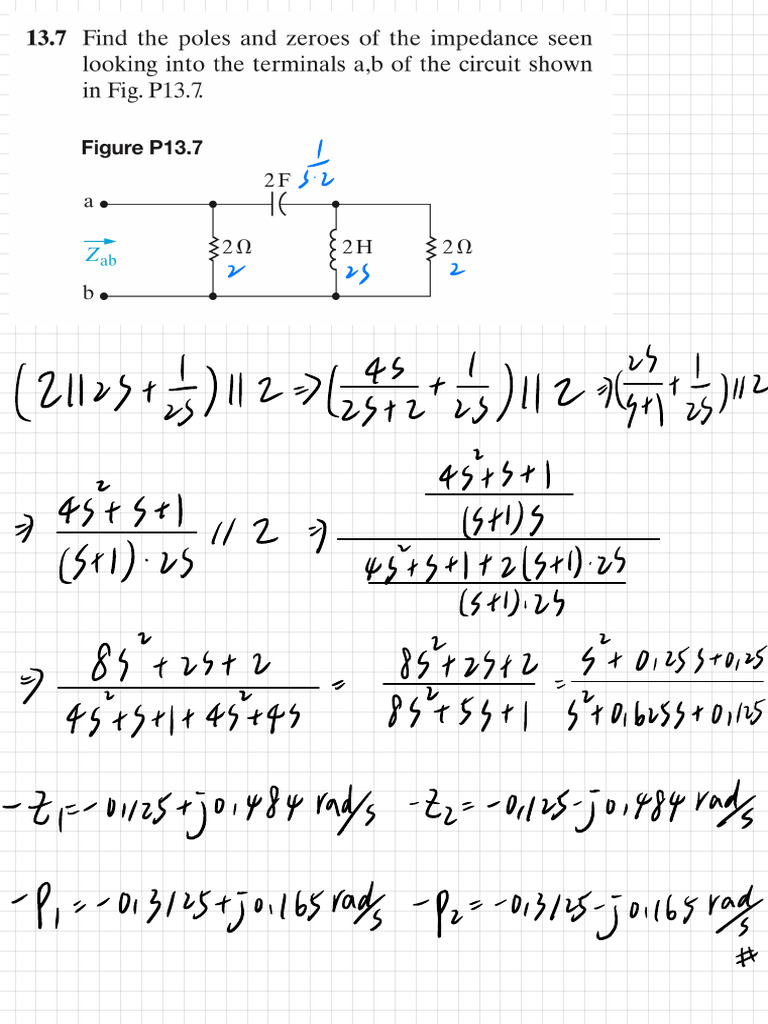 13.7 Find the poles and zeroes of the impedance seen
looking into the terminals a,b of the circuit shown
in Fig. P13.7.
Figure P13.7
1/(s·2)
2 F
a
Zab
2 Ω
2
2 H
2s
2 Ω
2
b
(2||2s + 1/(2s)) || 2 ⇒ (4s/(2s+2) + 1/(2s)) || 2 ⇒ (2s/(s+1) + 1/(2s)) || 2
⇒ (4s²+s+1)/((s+1)·2s) // 2 ⇒ ((4s²+s+1)/((s+1)s))/((4s²+s+1+2(s+1)·2s)/((s+1)·2s))
⇒ (8s²+2s+2)/(4s²+s+1+4s²+4s) = (8s²+2s+2)/(8s²+5s+1) = (s²+0.25s+0.25)/(s²+0.625s+0.125)
-z₁=-0.125+j0.484 rad/s -z₂=-0.125-j0.484 rad/s
-p₁=-0.3125+j0.165 rad/s -p₂=-0.3125-j0.165 rad/s
#